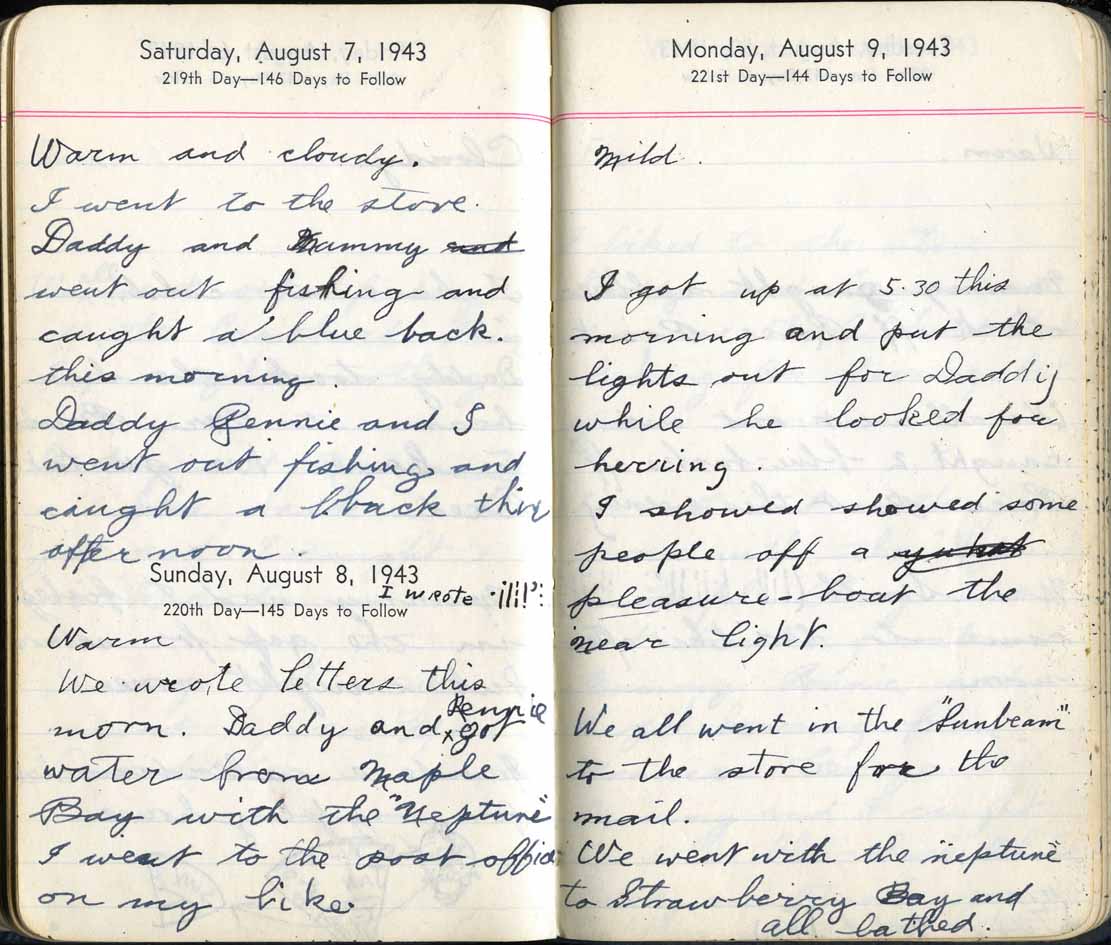 Saturday, August 7, 1943
219th Day—146 Days to Follow
Warm and cloudy.
I went to the store.
Daddy and Mammy and
went out fishing and
caught a blue back.
this morning
Daddy Rennie and I
went out fishing and
caught a bback this
after noon.
Sunday, August 8, 1943
I wrote
220th Day—145 Days to Follow
Warm
We wrote letters this
Rennie
morn. Daddy and x got
water from Maple
Bay with the "Neptune"
I went to the post office
on my bike
Monday, August 9, 1943
221st Day—144 Days to Follow
Mild.
I got up at 5.30 this
morning and put the
lights out for Daddy
while he looked for
herring.
I showed showed some
people off a
pleasure-boat the
near light.
We all went in the "Sunbeam"
to the store for the
mail.
We went with the neptune
to Strawberry Bay and
all bathed.